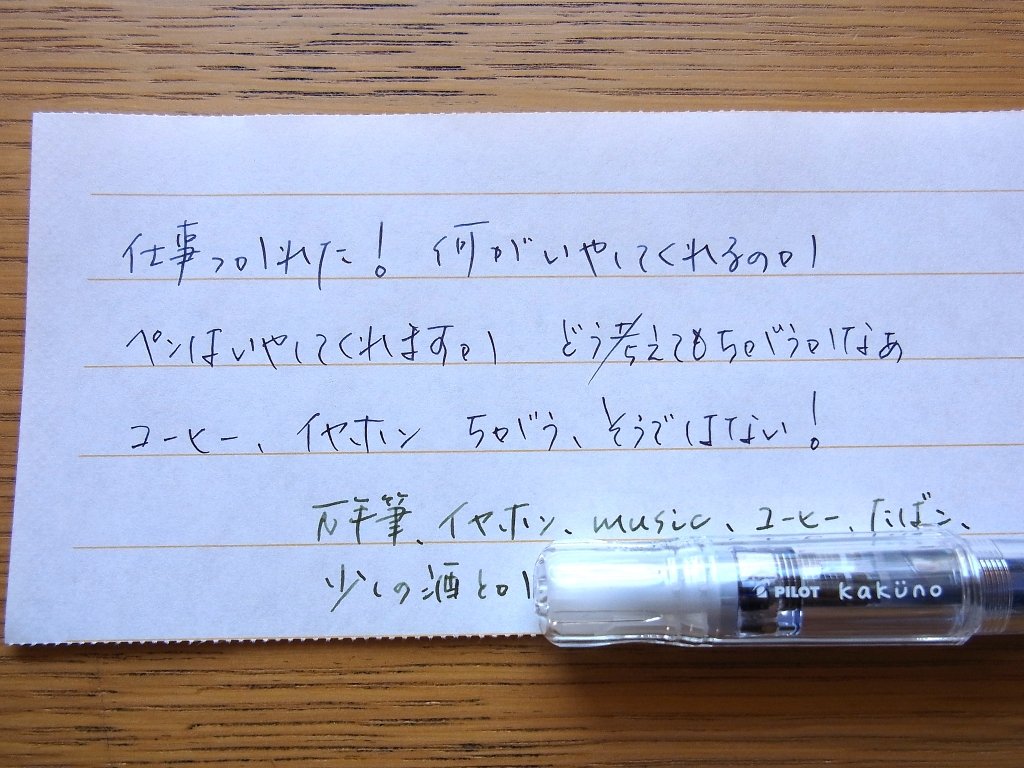 仕事つかれた! 何がいやしてくれるのか
ペンはいやしてくれますか どう考えてもちがうかなあ
コーヒー、イヤホン ちがう、そうではない!
万年筆、イヤホン、music、コーヒー、たばこ、
少しの酒とか
PILOT kaküno